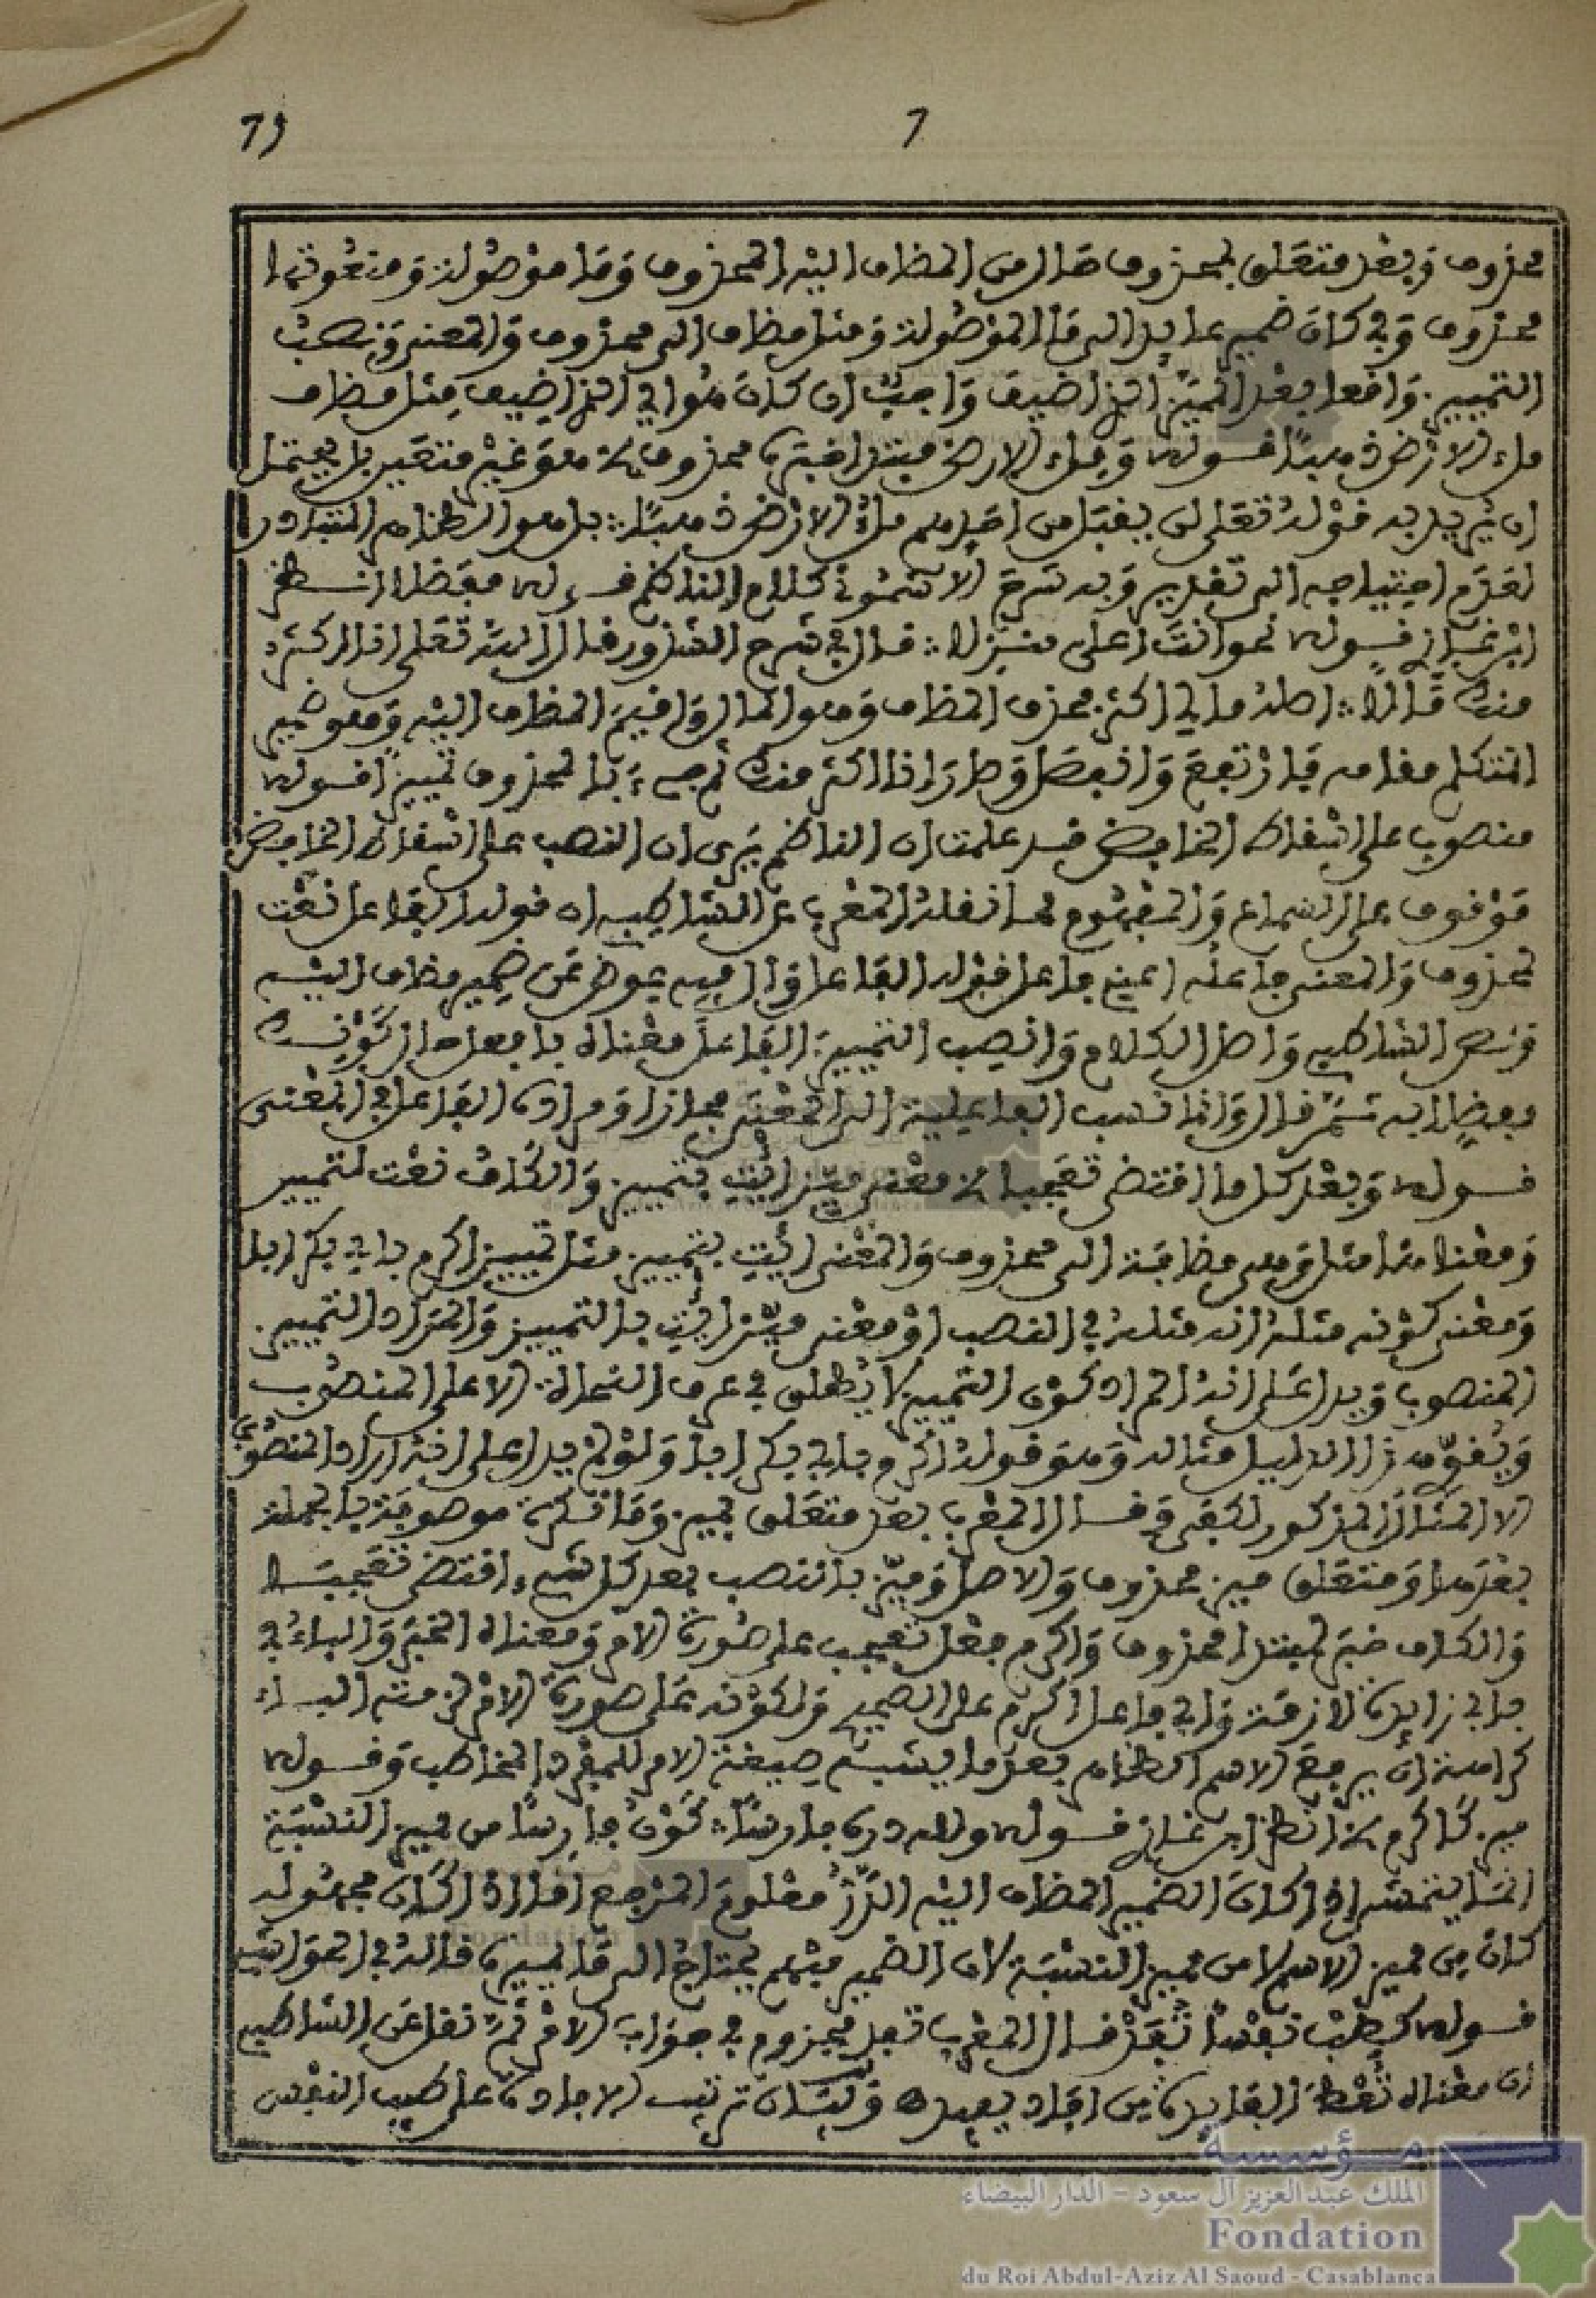 79
7
محذوف وبعد متعلق بمحذوف حال من المضاف اليه المحذوف وما موصولة ومنعوتها
محذوف وفي كان ضمير عايد الى ما الموصولة ومثل مضاف الى محذوف والمعنى ونصب
التمييز وافعا بعد المميز الذي اضيف واجب ان كان هو اي الذي اضيف مثل مضاف
ملء الارض ذهبا قوله وملء الارض مبتدا خبره محذوف هو غير متعين بل يحتمل
ان يريد به قوله تعلى لن يقبل من احدهم ملء الارض ذهبا بل هو الظاهر المتبادر
لعدم احتياجه الى تقدير وبه شرح الاشموني كلام الناظم
ابن غازي قوله نحو انت اعلى منزلا قال في شرح الشذور قال الله تعلى انا اكثر
منك مالا اصله مالي اكثر فحذف المضاف وهو المال واقيم المضاف اليه وهو ضمير
المتكلم مقامه فارتفع وانفصل وصار انا اكثر منك ثم جيء بالمحذوف تمييزا قوله
منصوب على اسقاط الخافض قد علمت ان الناظم يرى ان النصب على اسقاط الخافض
موقوف على السماع والمفهوم مما نقله المعرب عن الشاطبي ان قوله الفاعل نعت
لمحذوف والمعنى فاعله اعني فاعل فقوله الفاعل وال فيه عوض عن ضمير مضاف اليه
ونص الشاطبي واصل الكلام وانصب التمييز الفاعل معناه بافعل اي كونك
مفضلا به ثم قال وانما نسب الفاعلية الى المعنى مجازا ومراده الفاعل في المعنى
قوله وبعد كل ما اقتضى تعجبا معنى ميز ايت بتمييز والكاف نعت لتمييز
ومعناها مثل وهي مضافة الى محذوف والمعنى ايت بتمييز مثل تمييز اكرم بابي بكر ابا
ومعنى كونه مثله انه مثله في النصب او معنى ميز ايت بالتمييز والمراد التمييز
المنصوب ويدل على انه المراد كون التمييز لا يطلق في عرف النحاة الا على المنصوب
ويقوي هذا الدليل مثاله وهو قوله اكرم بابي بكر ابا ولو لم يدل على انه اراد المنصوب
الا المثال المذكور لكفى وقال المعرب بعد متعلق بميز وما نكرة موصوفة بالجملة
بعدها ومتعلق ميز محذوف والاصل وميز بانتصب بعد كل شيء اقتضى تعجبا
والكاف خبر لمبتدا محذوف واكرم فعل تعجب على صورة الامر ومعناه الخبر والباء في
بابي زايدة لازمة وابي فاعل اكرم على الصحيح ولكونه على صورة الامر لزمته الباء
كراهة ان يرفع الاسم الظاهر بعد ما يشبه صيغة الامر للمفرد المخاطب وقوله
انظر ابن غازي قوله ولله دره فارسا كون فارسا من مميز النسبة
انما يتمشى اذا كان الضمير المضاف اليه الدر معلوم المرجع اما اذا كان مجهوله
كان من مميز الاسم لا من مميز النسبة لان الضمير مبهم يحتاج الى ما يميزه قاله في الحواشي
قوله كطب نفسا تفد قال المعرب تفد مجزوم في جواب الامر ثم نقل عن الشاطبي
ان معناه تعط الفايدة من افاد يفيده وكان ترتب الافادة على طيب النفس
مؤسسة
الملك عبد العزيز آل سعود - الدار البيضاء
Fondation
du Roi Abdul-Aziz Al Saoud - Casablanca